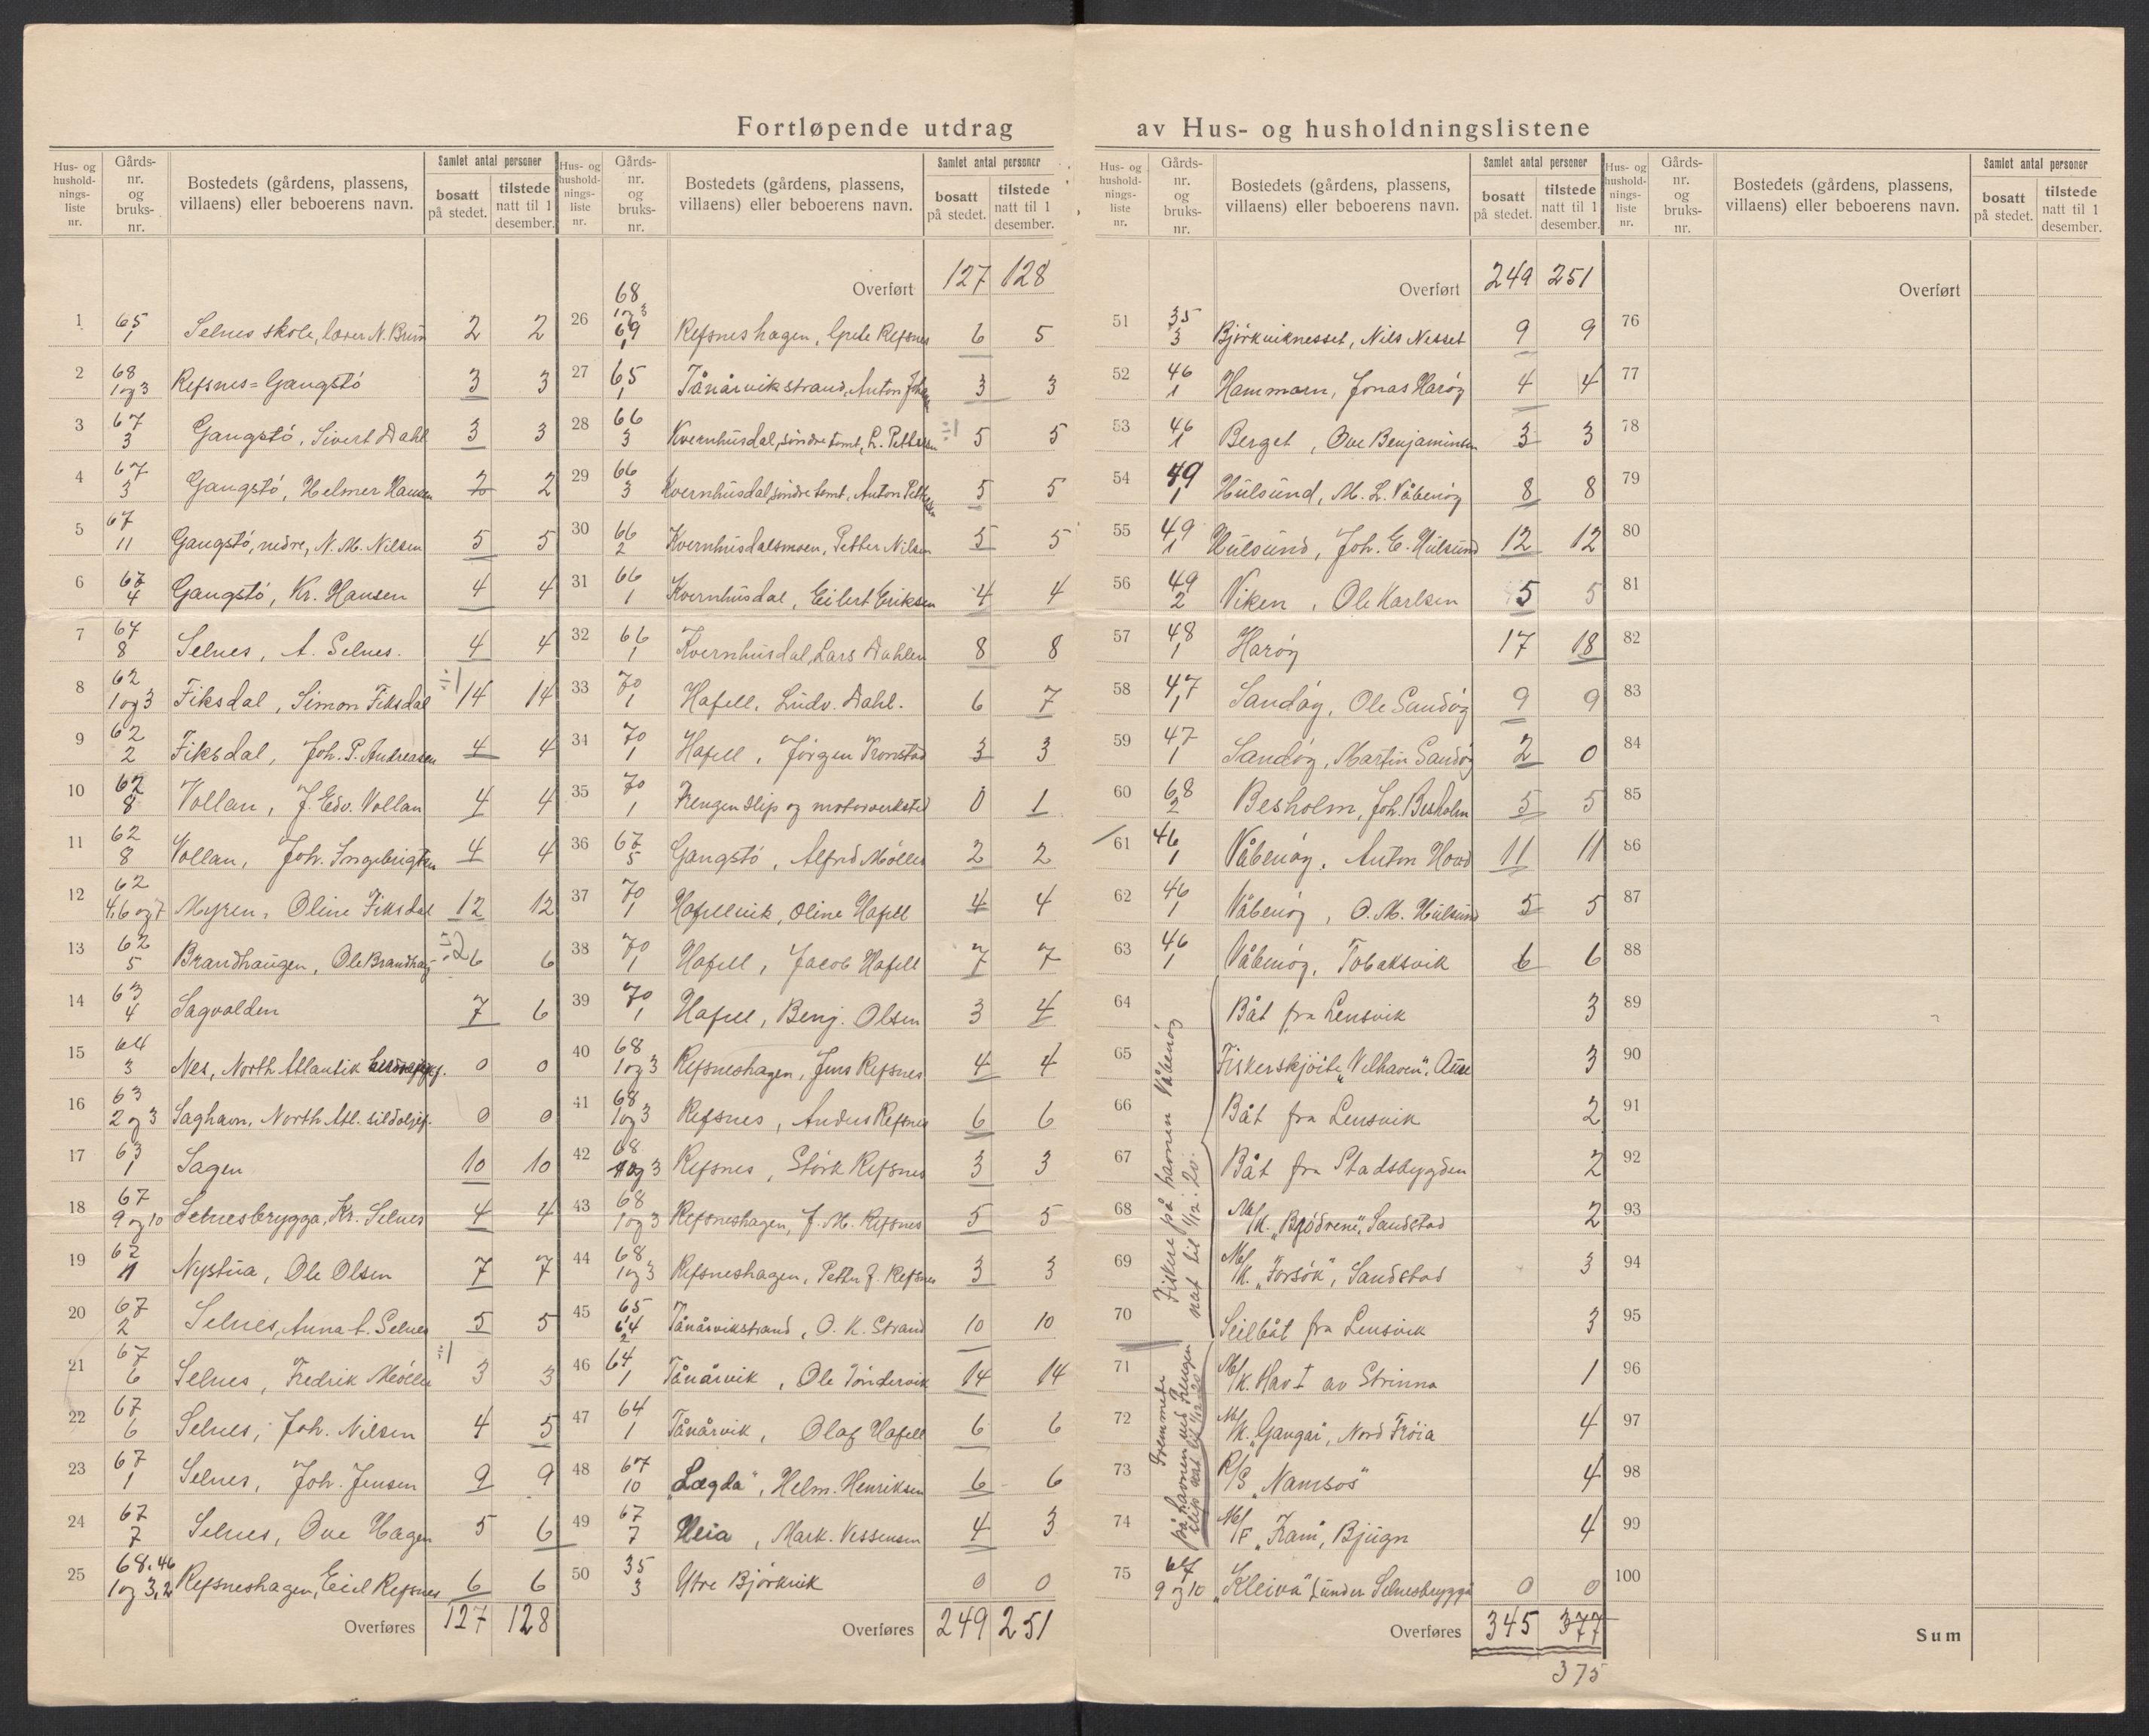 Fortløpende utdrag av Hus- og husholdningslistene
Hus- og husholdnings-liste nr. | Gårds-nr. og bruks-nr. | Bostedets (gårdens, plassens, villaens) eller beboerens navn. | Samlet antal personer | bosatt på stedet. | tilstede natt til 1 desember.
1 65 1 Selnes skole, lærer N. Brun 2 2
2 68 1 og 3 Refsnes=Gangstö 3 3
3 67 3 Gangstö, Sivert Dahl 3 3
4 67 3 Gangstö, Helmer Hansen 2 2
5 67 11 Gangstö, nedre, N. M. Nilsen 5 5
6 67 4 Gangstö, Kr. Hansen 4 4
7 67 8 Selnes, A. Selnes. 4 4
8 62 1 og 3 Fiksdal, Simon Fiksdal ÷1 14 14
9 62 2 Fiksdal, Joh. P. Andreasen 4 4
10 62 8 Vollan, J. Edv. Vollan 4 4
11 62 8 Vollan, Joh. Ingebrigtsen 4 4
12 62 4,6 og 7 Myren, Oline Fiksdal 12 12
13 62 5 Brandhaugen, Ole Brandhaug ÷2 6 6
14 63 4 Sagvolden 7 6
15 64 3 Nes, North Atlantik 0 0
16 63 2 og 3 Saghavn, North Atl. sildoljef. 0 0
17 63 1 Sagen 10 10
18 67 9 og 10 Selnesbrygga, Kr. Selnes 4 4
19 62 11 Nystua, Ole Olsen 7 7
20 67 2 Selnes, Anna A. Selnes 5 5
21 67 6 Selnes, Fredrik Möller ÷1 3 3
22 67 6 Selnes, Joh. Nilsen 4 5
23 67 1 Selnes, Joh. Jensen 9 9
24 67 7 Selnes, Ove Hagen 5 6
25 68.46 1 og 3,2 Refsneshagen, Eeil Refsnes 6 6
Overføres 127 128
Hus- og husholdnings-liste nr. | Gårds-nr. og bruks-nr. | Bostedets (gårdens, plassens, villaens) eller beboerens navn. | Samlet antal personer | bosatt på stedet. | tilstede natt til 1 desember.
Overført 127 128
26 68 1 og 3 69 1 Refsneshagen, Grete Refsnes 6 5
27 65 1 Tånårvikstrand, Anton Johansen 3 3
28 66 3 Kvernhusdal, söndre tomt, L. Pettersen ÷1 5 5
29 66 3 Kvernhusdal, söndre tomt, Anton Pettersen 5 5
30 66 2 Kvernhusdalsmoen, Petter Nilsen 5 5
31 66 1 Kvernhusdal, Eilert Eriksen 4 4
32 66 1 Kvernhusdal, Lars Dahlen 8 8
33 70 1 Hafell, Ludv. Dahl. 6 7
34 70 1 Hafell, Jörgen Tronstad 3 3
35 70 1 Trengen slip og motorverksted 0 1
36 67 5 Gangstö, Alfred Möller 2 2
37 70 1 Hafellvik, Oline Hafell 4 4
38 70 1 Hafell, Jacob Hafell 7 7
39 70 1 Hafell, Benj. Olsen 3 4
40 68 1 og 3 Refsneshagen, Jens Refsnes 4 4
41 68 1 og 3 Refsnes, Anders Refsnes 6 6
42 68 1 og 3 Refsnes, Störk Refsnes 3 3
43 68 1 og 3 Refsneshagen, J. M. Refsnes 5 5
44 68 1 og 3 Refsneshagen, Petter J. Refsnes 3 3
45 65 1 64 2 Tånårvikstrand, O. K. Strand 10 10
46 64 1 Tånårvik, Ole Töndervik 14 14
47 64 1 Tånårvik, Olaf Hafell 6 6
48 67 10 „Lægda", Helm. Henriksen 6 6
49 67 7 Heia, Mark. Vessensen 4 3
50 35 3 Ytre Björkvik 0 0
Overføres 249 251
Hus- og husholdnings-liste nr. | Gårds-nr. og bruks-nr. | Bostedets (gårdens, plassens, villaens) eller beboerens navn. | Samlet antal personer | bosatt på stedet. | tilstede natt til 1 desember.
Overført 249 251
51 35 3 Björkviknesset, Nils Nesset 9 9
52 46 1 Hammarn, Jonas Haröy 4 4
53 46 1 Berget, Ove Benjaminsen 3 3
54 49 1 Hulsund, M. L. Våbenöy 8 8
55 49 1 Hulsund, Joh. E. Hulsund 12 12
56 49 2 Viken, Ole Karlsen 5 5
57 48 1 Haröy 17 18
58 47 1 Sandöy, Ole Sandöy 9 9
59 47 1 Sandöy, Martin Sandöy 2 0
60 68 2 Besholm, Joh. Besholm 5 5
61 46 1 Våbenöy, Anton Hovd 11 11
62 46 1 Våbenöy, O. M. Hulsund 5 5
63 46 1 Våbenöy, Tobaksvik 6 6
Fiskere på havnen Våbenöy nat til 1/12. 20.
64 Båt fra Lensvik 3
65 Fiskerskjöite „Velhaven", Aure 3
66 Båt fra Lensvik 2
67 Båt fra Stadsbygden 2
68 M/K. „Brödrene", Sandstad 2
69 M/K. „Forsök", Sandstad 3
70 Seilbåt fra Lensvik 3
Fremmede på havnen ved Trengen slip nat til 1/12-20
71 M/K. Hav I av Strinna 1
72 M/K. „Gangar", Nord Fröia 4
73 R/S „Namsos" 4
74 M/F „Fram", Bjugn 4
75 67 9 og 10 „Kleiva" (under Selnesbrygga 0 0
Overføres 345 377
375
Hus- og husholdnings-liste nr. | Gårds-nr. og bruks-nr. | Bostedets (gårdens, plassens, villaens) eller beboerens navn. | Samlet antal personer | bosatt på stedet. | tilstede natt til 1 desember.
Overført
76
77
78
79
80
81
82
83
84
85
86
87
88
89
90
91
92
93
94
95
96
97
98
99
100
Sum